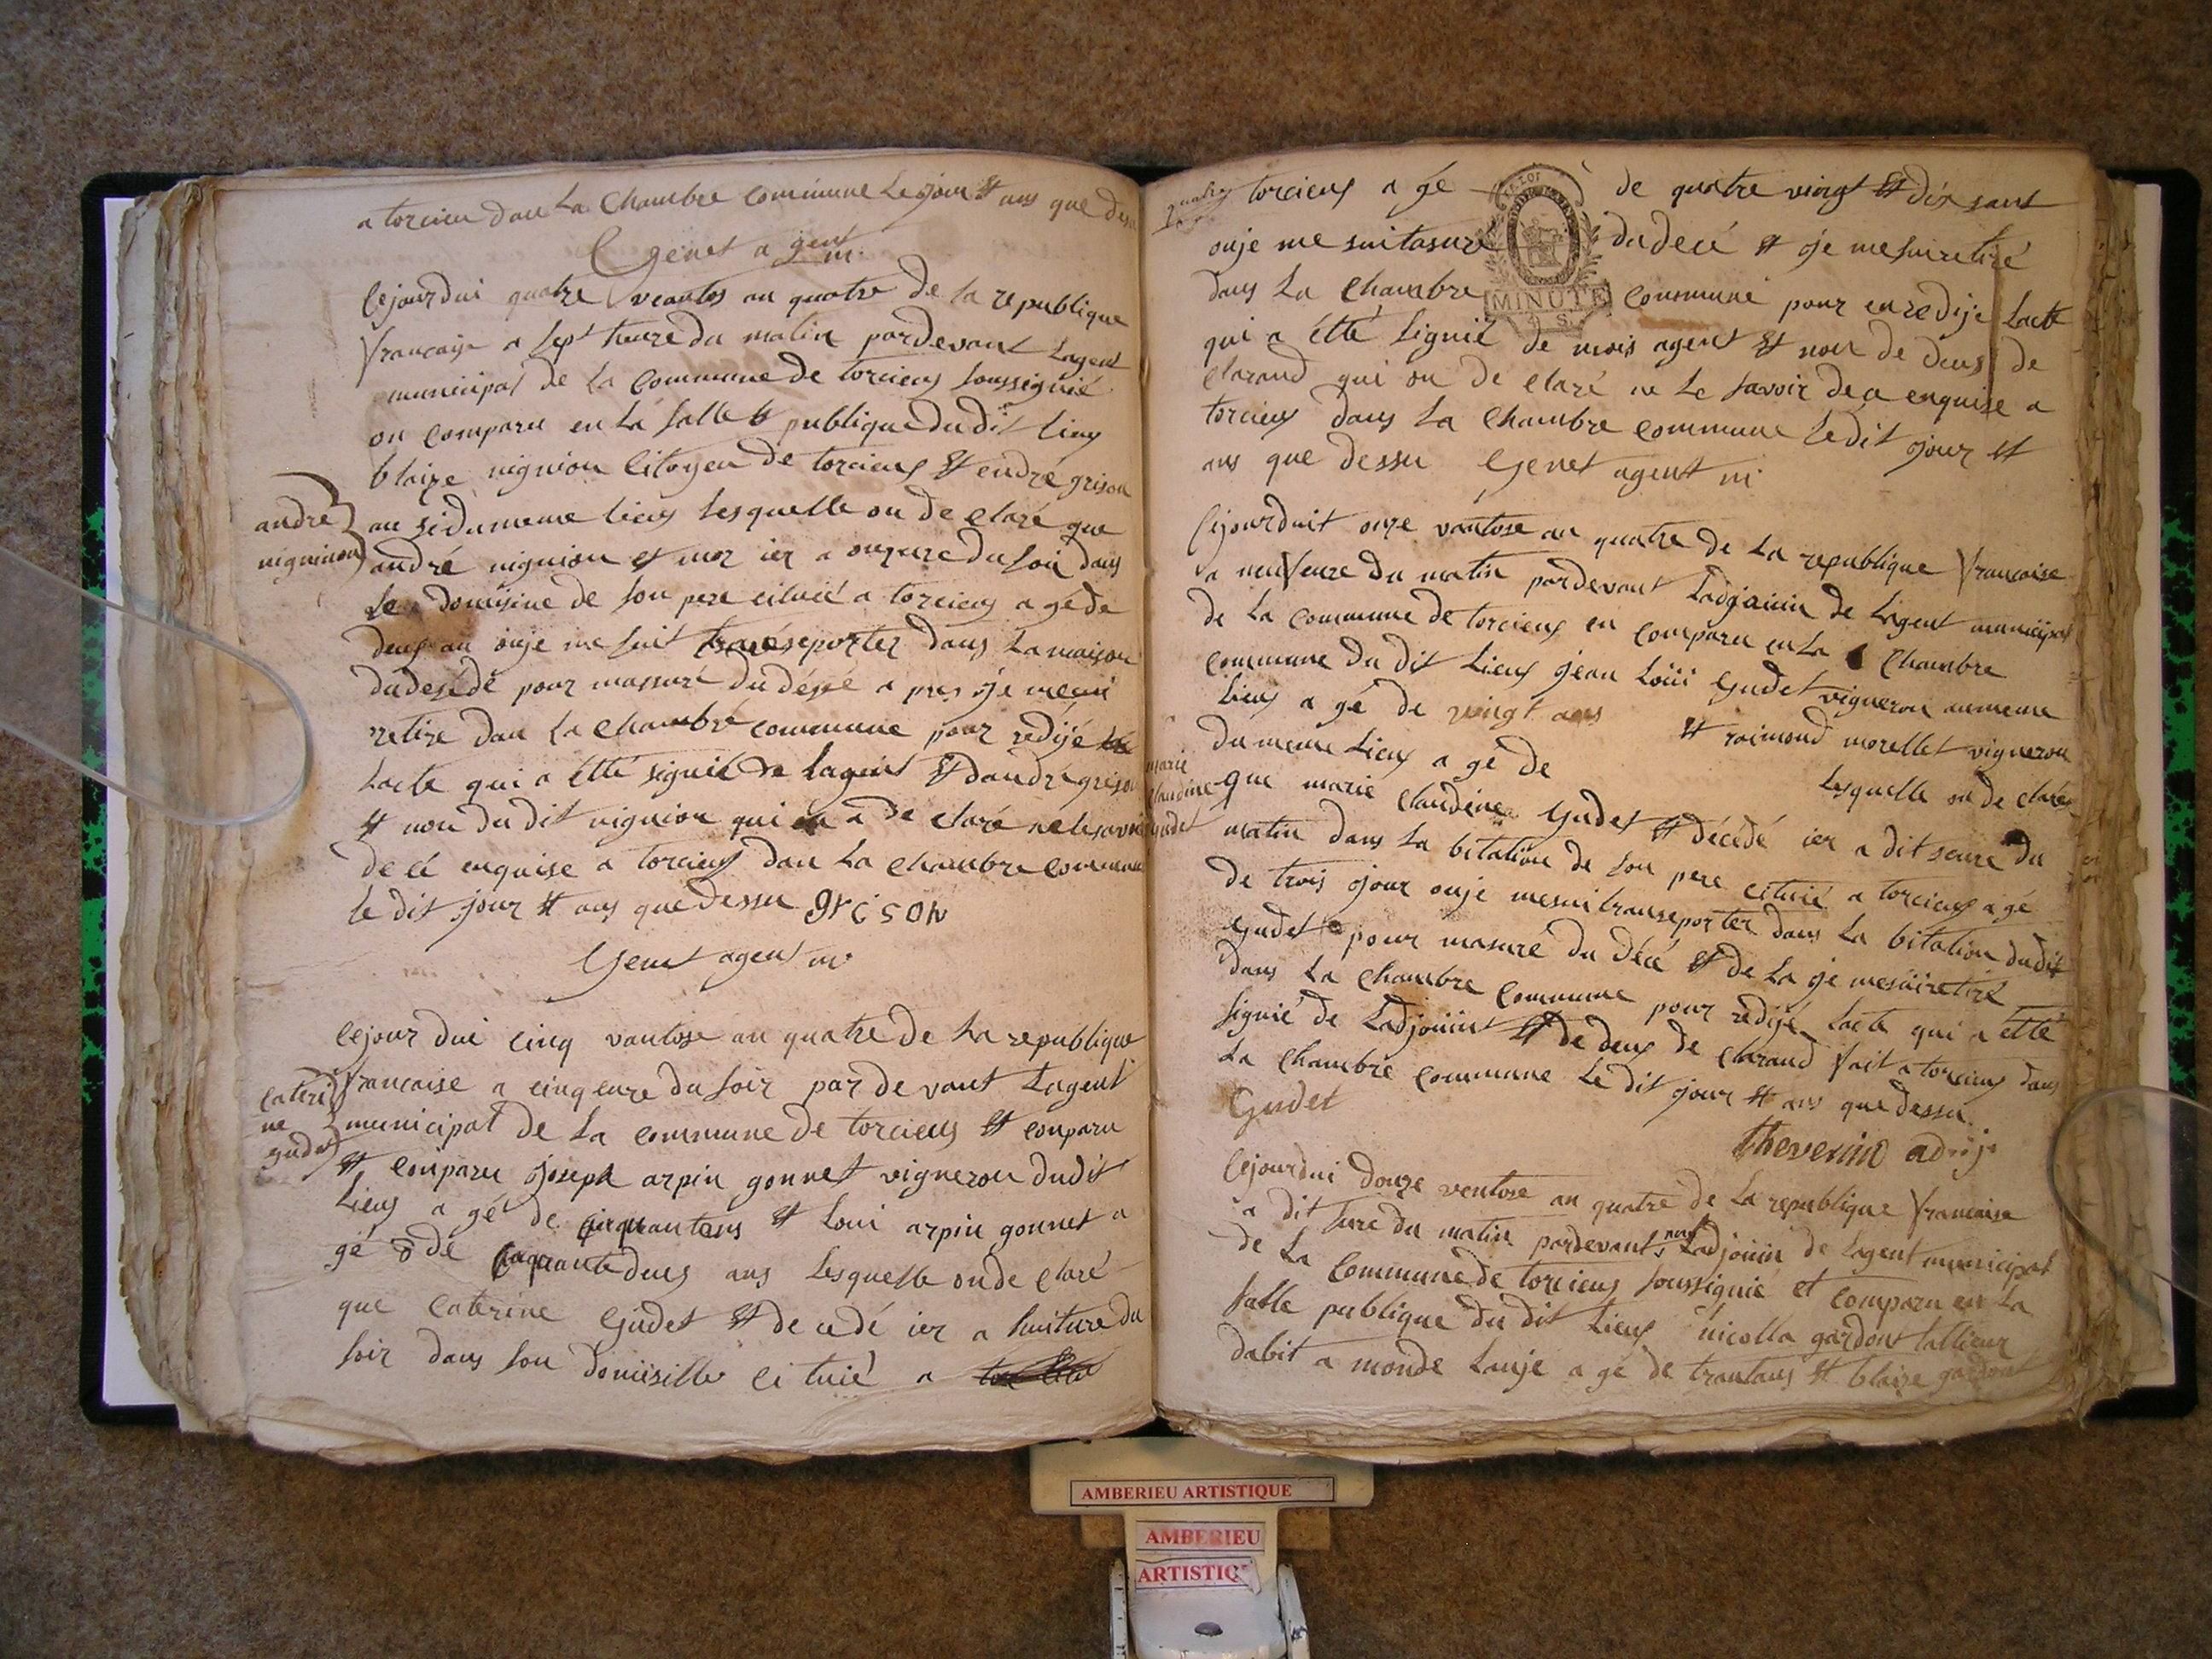 a torcieu dan La Chambre Commune Le jour Et ans que dessu
Genet agent m.
Cejourdui quatre veantos an quatre De la republique
francaise a sept heure du matin pardevant Lagent
municipal de La Commune de torcieux soussignié
on Comparu en La salle publique du dit lieux
blaize nigniou Citoyen de torcieux Et endré grison
andre
nignion
au sidumeme lieux Lesquelle on de claré que
andré nigniou et mor ier a onzure du soir dans
Le domisine de son pere cituié a torcieux a gé de
deux an ouje me suit transeporter dans La maison
du desédé pour massuré du déssé a pres je me sui
retire dan La Chambre commune pour redijé
Lacte qui a étté signié de Lagent Et dandré grison
Et non du dit nigniou qui a de claré ne lesavoir
de cé enquise a torcieux dan La Chambre Commune
le dit jour Et ans que dessu grison
Genet agent m.
Cejour dui Cinq vantose an quatre de La republique
francaise a cinq eure du soir par de vant Lagent
Cateri
ne
gudet
municipal de La Commune de torcieux Et comparu
Et Comparu joseph arpin gonnet vigneron dudit
Lieux a gé de cinquantans Et Loui arpin gonnet a
gé de cinquante deux ans Lesquelle on de claré
que Caterine Gudet Et de cedé ier a huiture du
soir dans son domisille Ci tuié a
torcieux a gé de quatre vingt Et dix sant
ouje me suit asuré du decé Et je me sui retiré
dans La Chambre Commune pour en redije Lacte
MINUTE
qui a étté signié de mois agent Et non de deux de
clarand qui on de claré ne Le savoir de ce enquise a
torcieux dans La Chambre commune Le dit jour Et
ans que dessu Genet agent m.
Cejourduit onze vantose an quatre de La republique francaise
a neufeure du matin pardevant Ladjaiuin de Lagent municipal
de La Commune de torcieux en Comparu en La Chambre
Commune du dit Lieux jean Loüi Gudet vigneron aumeme
Lieux a gé de vingt ans Et raimond morellet vigneron
du meme Lieux a gé de Lesquelle on de claré
marie
Claudine
gudet
que marie Claudine Gudet Et décédé ier a dit seure du
matin dans La bitation de son pere cituié a torcieux a gé
de trois jour ouje mesui transeporter dans La bitation dudit
Gudet pour masuré du décé Et de La je mesüiretiré
dans La Chambre Commune pour redijé Lacte qui a étté
signié de Ladjoüint Et de deux de clarand fait a torcieux dans
La Chambre Commune Le dit jour Et ans que dessu
Gudet
thevenin
Cejourdui douze ventose an quatre de La republique francaise
a dit hure du matin pardevant nous Ladjoüin de Lagent municipal
de La Commune de torcieux soussignié et Comparu en La
salle publique du dit Lieux nicolla gardont tallieur
dabit a monde Lanje a gé de trantans Et blaize gardont
AMBERIEU ARTISTIQUE
AMBERIEU
ARTISTIQ